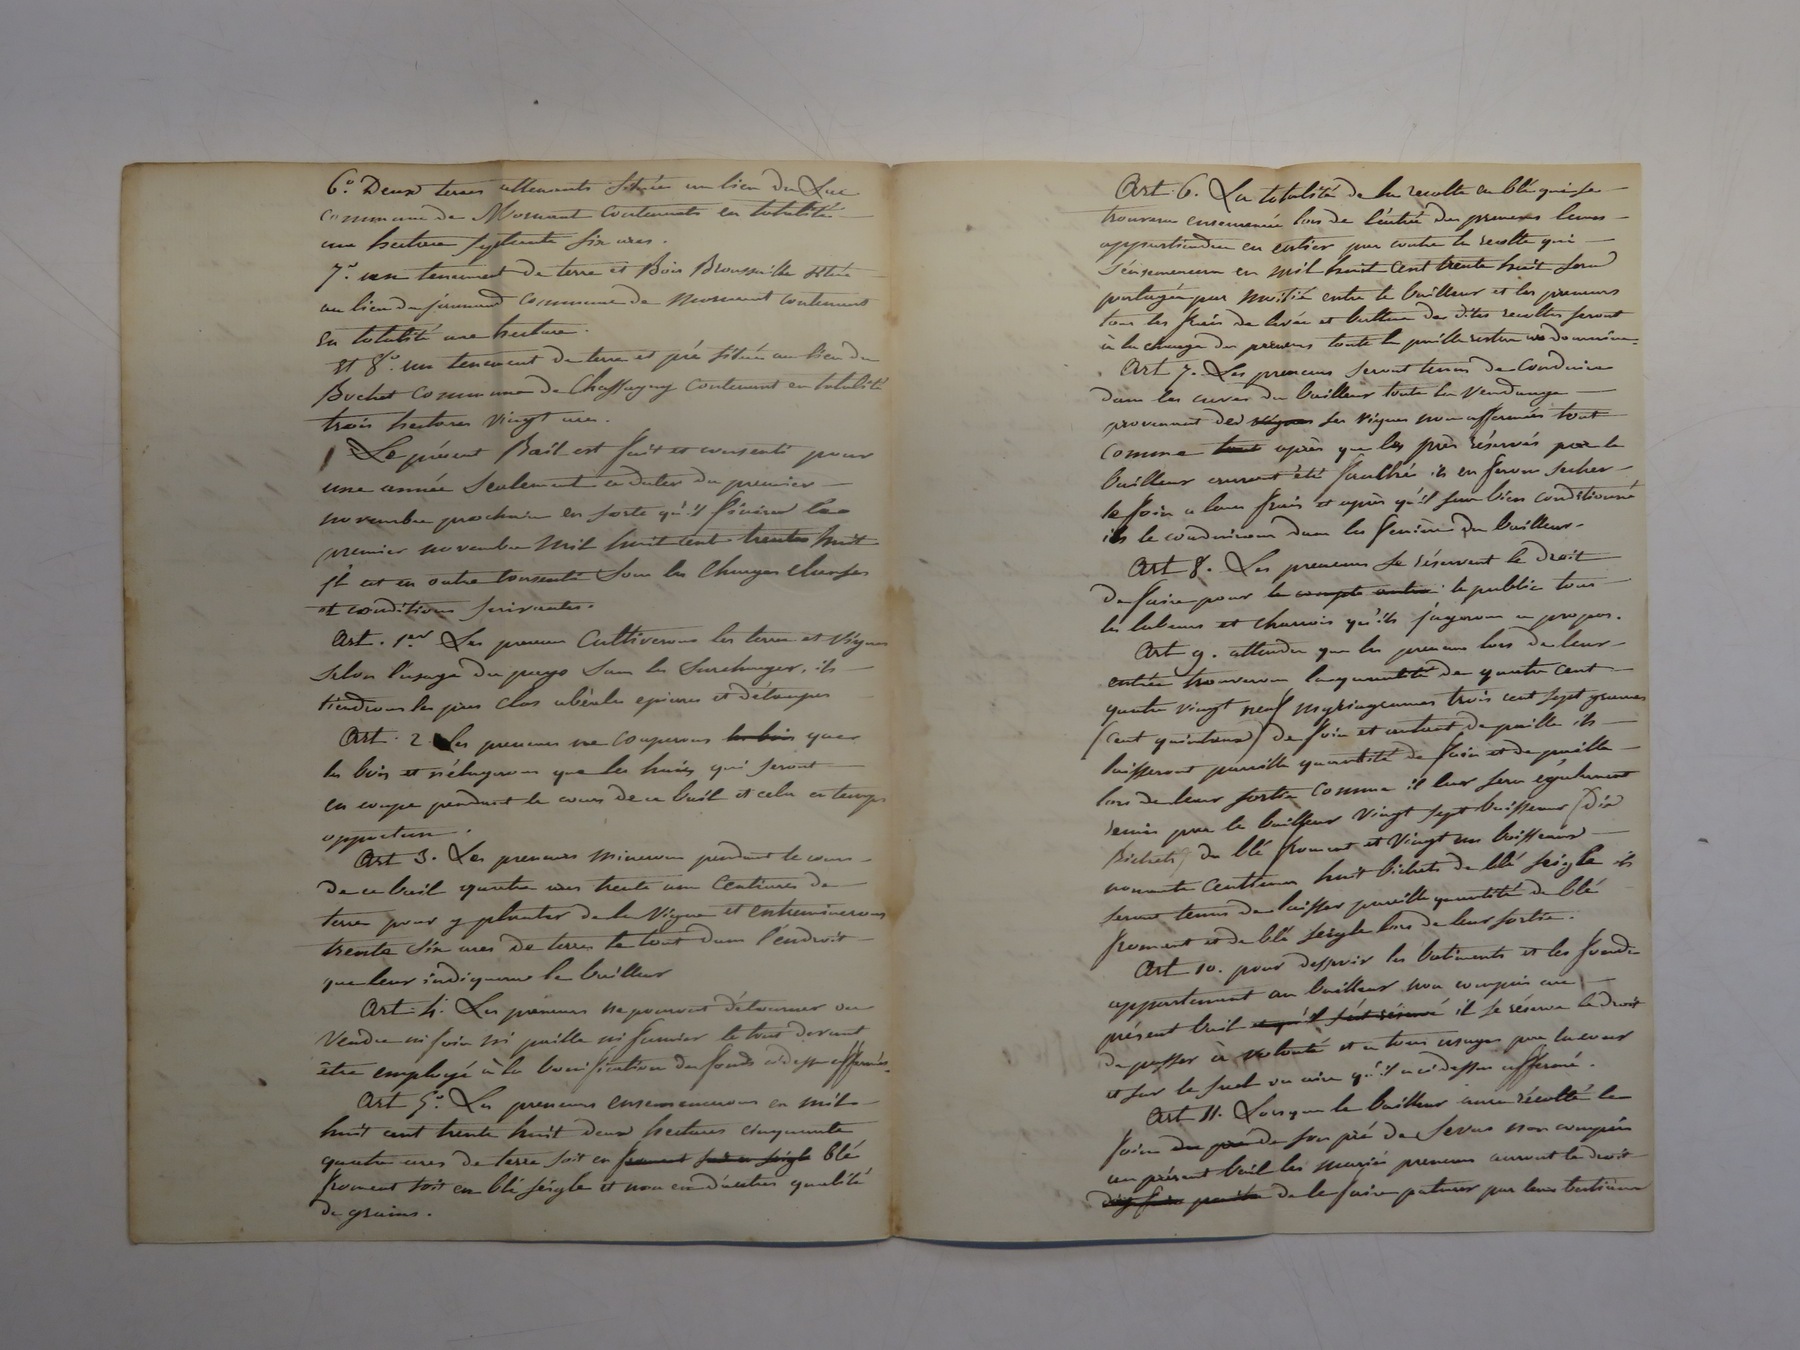 6.° Deux terres attenants située au lieu du Luc
commune de Mornant contenants en totalité
une hectare septante six ares.
7.° un tenement de terre et Bois Broussaille situé
au lieu de commune de Mornant contenant
en totalité une hectare.
et 8.° un tenement de terre et pré située au lieu du
Bochet commune de Chassagny contenant en totalité
trois hectares vingt ares.
Le présent Bail est fait et consenti pour
une année seulement à dater du premier
novembre prochain en sorte qu'il finira le
premier novembre mil huit cent trente huit
il est en outre consenti sous les charges clauses
et conditions suivantes.
Art. 1er Les preneurs cultiverons les terres et vignes
selon l'usage du pays sans les surcharger, ils
tiendrons les prés clos abérolés épierrés et détaupés
Art. 2. Les preneurs ne couperons les bois que
les bois et n'élagerons que les haies qui seront
en coupe pendant le cours de ce bail et cela en temps
opportun.
Art 3. Les preneurs minerons pendant le cours
de ce bail quatre ares trente une centiares de
terre pour y planter de la vigne et entremineront
trente six ares de terres le tout dans l'endroit
que leur indiquera le bailleur
Art. 4. Les preneurs ne pourront détourner ou
vendre ni foin ni paille ni fumier le tout devant
être employé à la bonification des fonds ci dessus affermés.
Art 5.° Les preneurs ensemencerons en mil
huit cent trente huit deux hectares cinquante
quatre ares de terre soit en froment soit en seigle blé
froment soit en blé seigle et non en d'autres qualité
de grains.
Art. 6. La totalité de la recolte en blé qui se
trouvera ensemencée lors de l'entrée des preneurs leurs
appartiendra en entier par contre la recolte qui
s'ensemencera en mil huit cent trente huit sera
partagée par moitié entre le bailleur et les preneurs
tous les frais de levée et batture des dites recoltes seront
à la charge des preneurs toute la paille restera au domaine.
Art 7. Les preneurs seront tenus de conduire
dans les cuves du bailleur toute la vendange
provenant des vignes ses vignes non affermées tout
comme tout après que les prés réservés par le
bailleur auront été fauchés ils en feront secher
le foin a leurs frais et après qu'il sera bien conditionné
ils le conduiront dans les fenières du bailleur.
Art 8. Les preneurs se réservent le droit
de faire pour le compte autrui le public tous
les labeurs et charrois qu'ils jugeront a propos.
Art 9. attendu que les preneurs lors de leur
entrée trouveron la quantité de quatre cent
quatre vingt neuf myriagrammes trois cent sept grammes
(cent quintaux) de foin et autant de paille ils
laisseront pareille quantité de foin et de paille
lors de leur sortie comme il leur sera également
remis par le bailleur vingt sept boisseaux (dix
Bichets) de blé froment et vingt un boisseaux
nonante centièmes huit bichets de blé seigle ils
seront tenus de laisser pareille quantité de blé
froment et de blé seigle lors de leur sortie.
Art 10. pour desservir les batiments et les fonds
appartenant au bailleur non compris au
présent bail et qu'il s'est réservé il se réserve le droit
de passer à volonté et a tous usages par la cour
et sur le suel ou aire qu'il a ci dessus affermé.
Art 11. Lorsque le bailleur aura récolté le
foin du pré de son pré de Sevas non compris
au présent bail les mariés preneurs auront le droit
de le faire paturer par leurs bestiaux